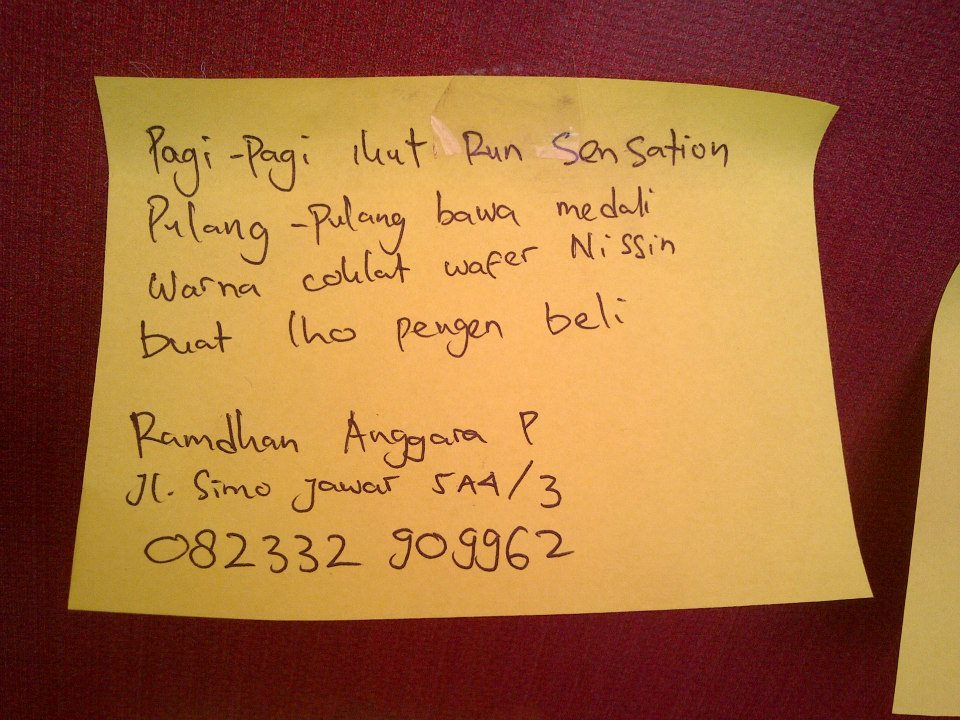 Pagi-Pagi ikut Run Sensation
Pulang-Pulang bawa medali
Warna coklat wafer Nissin
buat lho pengen beli
Ramdhan Anggara P
Jl. Simo jawar 5A4/3
082332 909962